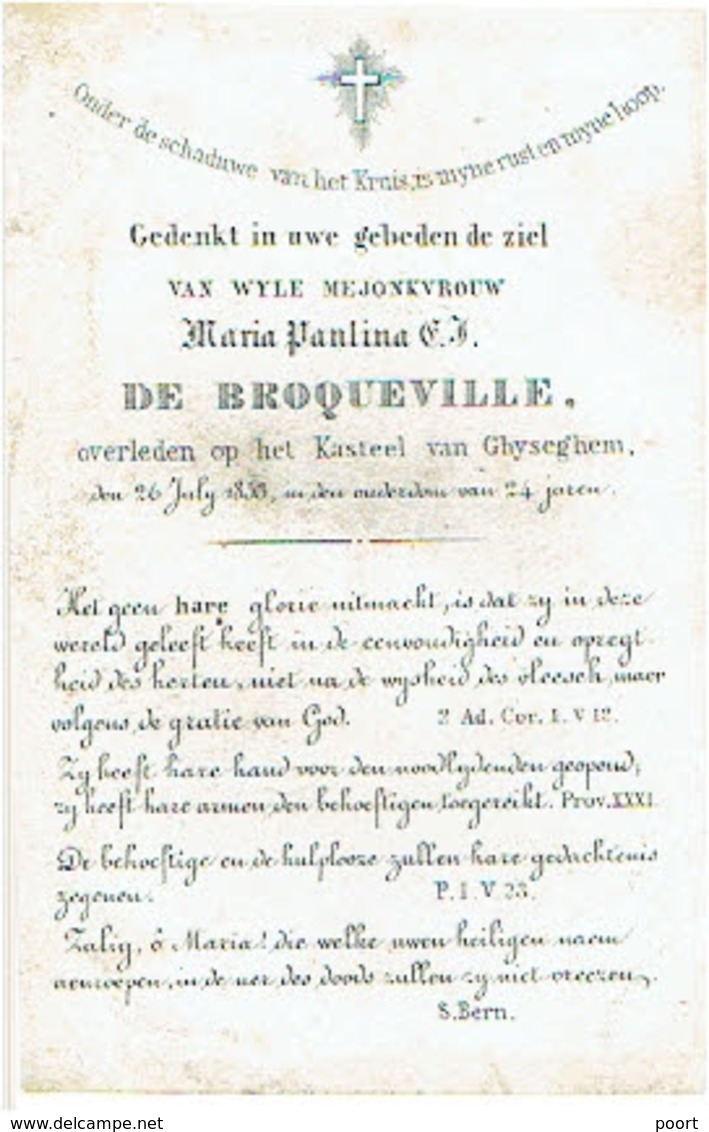 Onder de schaduwe van het Kruis, is myne rust en myne hoop.
Gedenkt in uwe gebeden de ziel
VAN WYLE MEJONKVROUW
Maria Paulina E. J.
DE BROQUEVILLE,
overleden op het Kasteel van Ghyseghem,
den 26 July 1853, in den ouderdom van 24 jaren.
Het geen hare glorie uitmaekt, is dat zy in deze
wereld geleeft heeft in de eenvoudigheid en opregt-
heid des herten, niet na de wysheid des vleesch, maer
volgens de gratie van God. 2 Ad. Cor. I. V 12.
Zy heeft hare hand voor den noodlydenden geopend,
zy heeft hare armen den behoeftigen toegereikt. Prov. XXXI
De behoeftige en de hulplooze zullen hare gedachtenis
zegenen. P. I. V 23.
Zalig, ô Maria! die welke uwen heiligen naem
aenroepen, in de uer des doods zullen zy niet vreezen.
S. Bern.
www.delcampe.net
poort